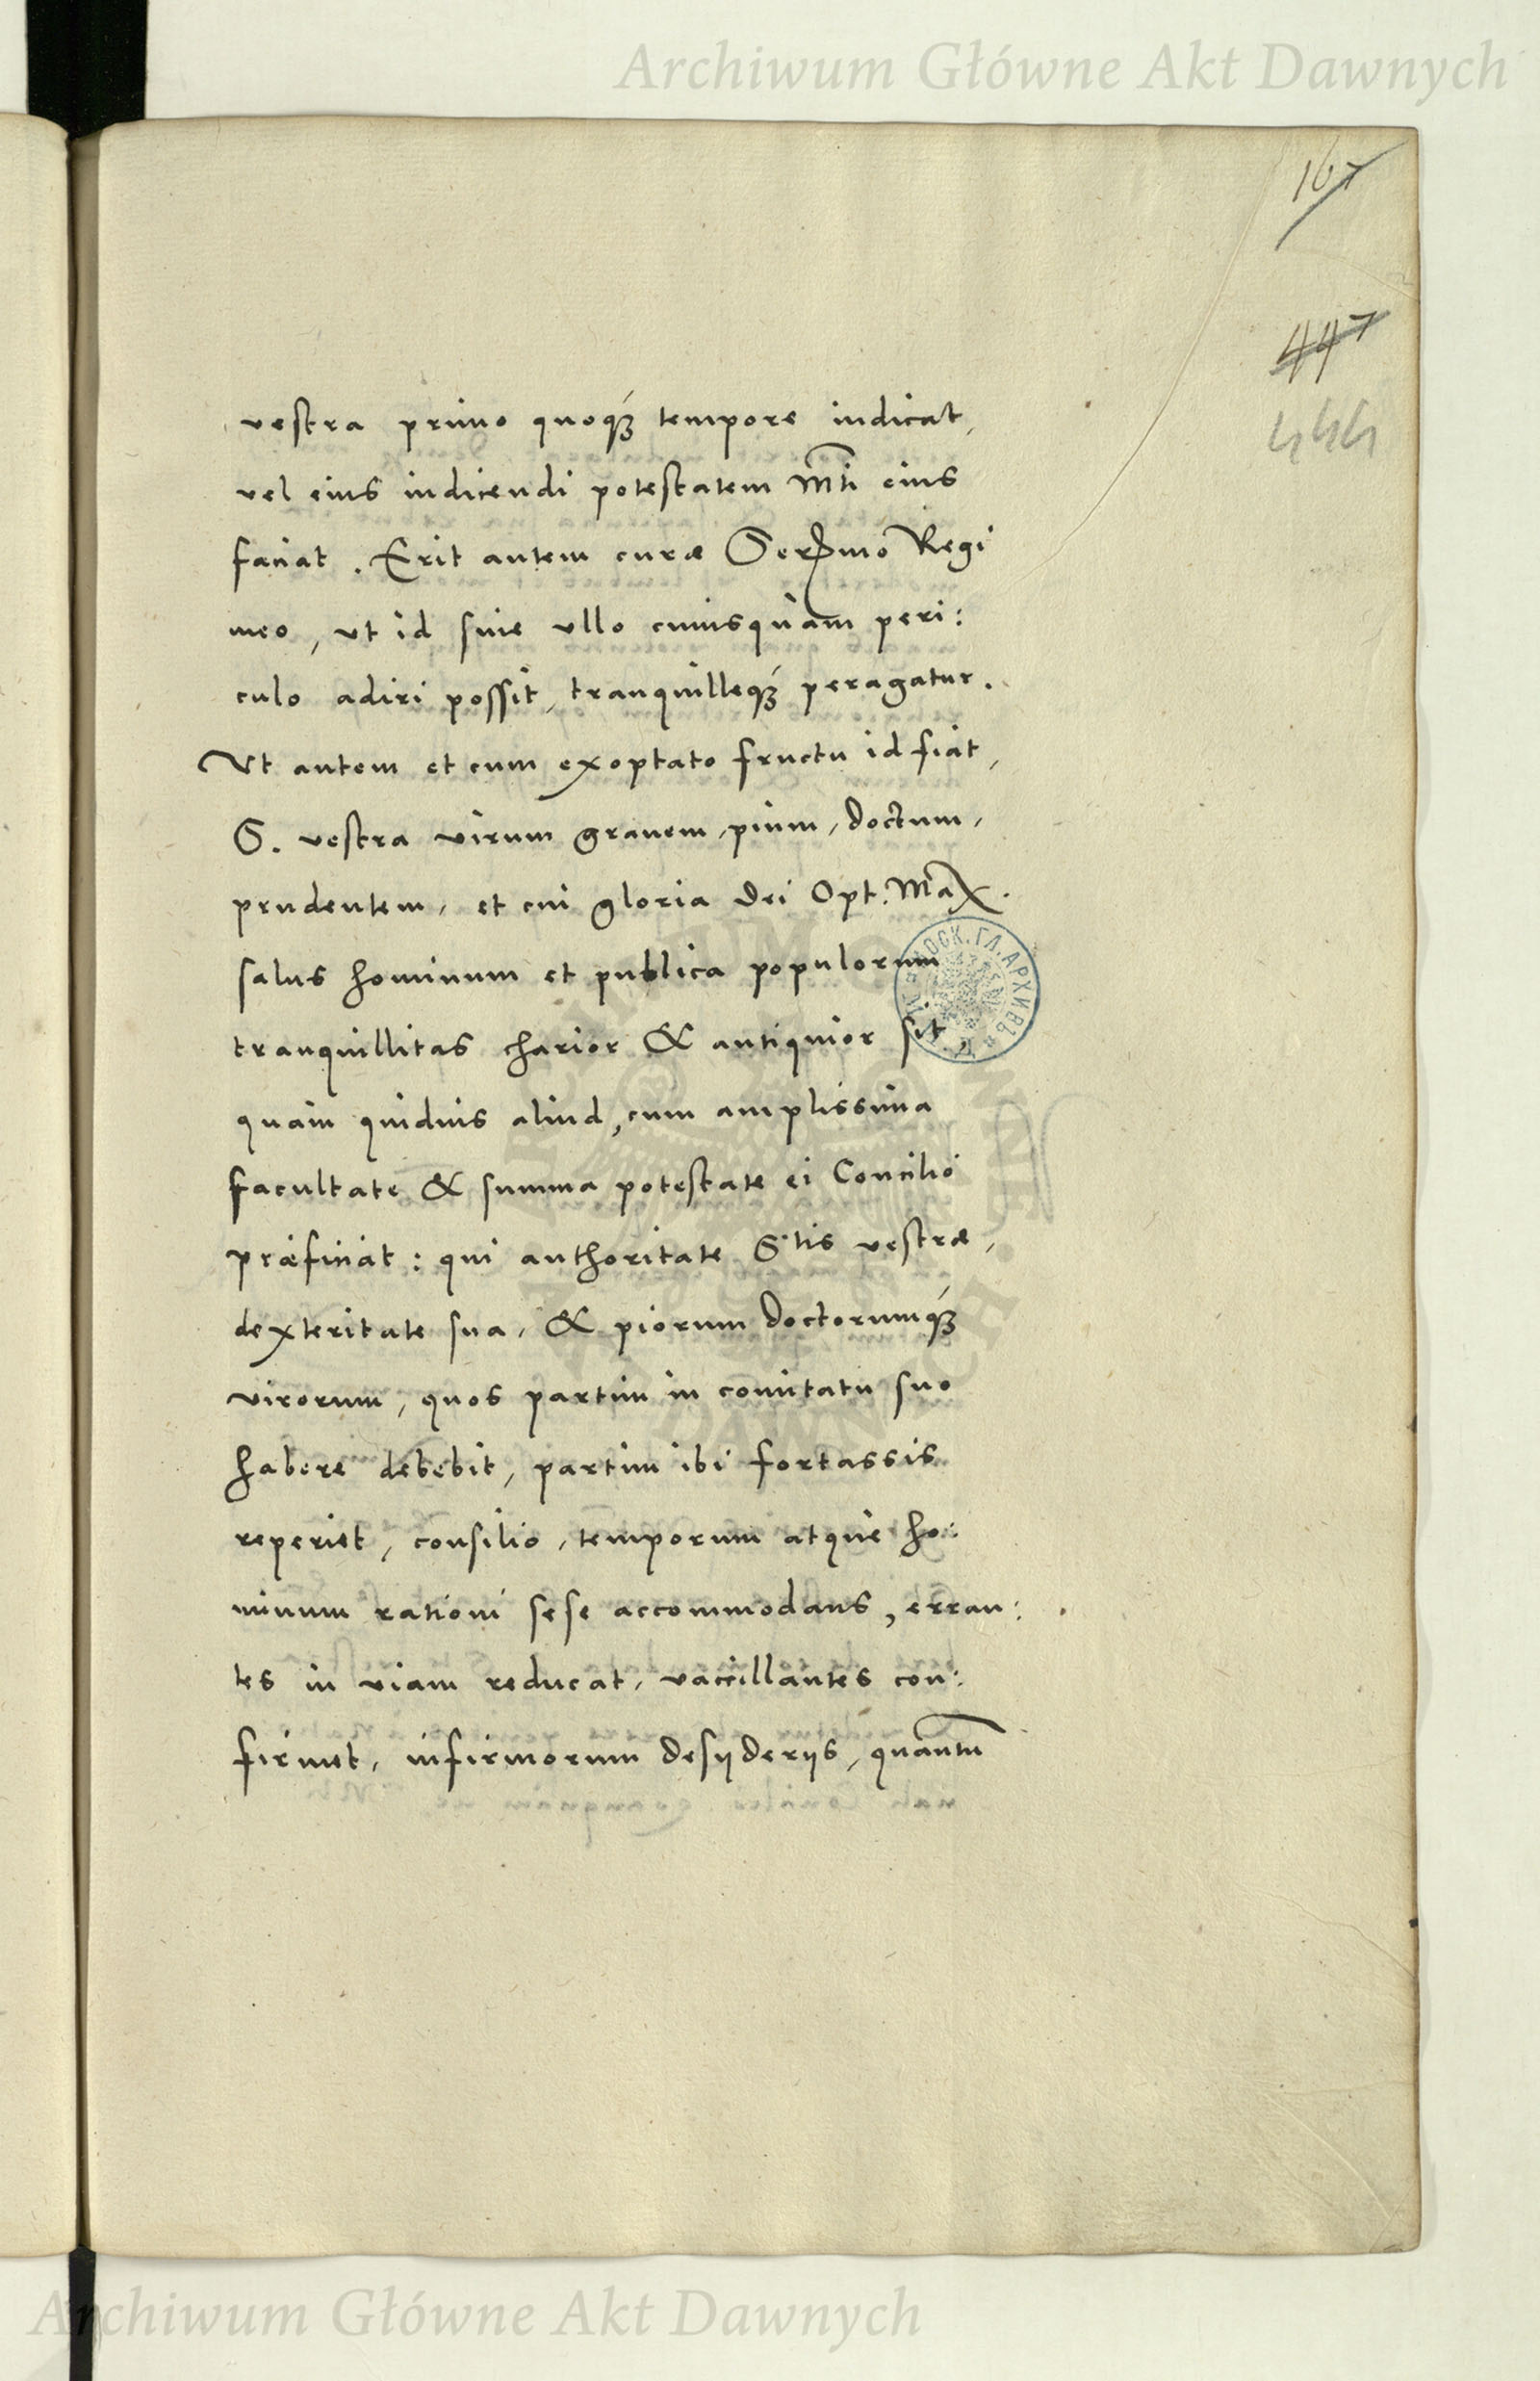 Archiwum Główne Akt Dawnych
167
447
444
vestra primo quoq́ꝫ tempore indicat,
vel eius indicendi potestatem Mti eius
faciat. Erit autem curæ Serᵐᵐo Regi
meo, ut id sine ullo cuiusquam peri:
culo adiri possit, tranquilleq́ꝫ peragatur.
Ut autem et cum exoptato fructu id fiat,
S. vestra virum gravem, pium, doctum,
prudentem, et cui gloria Dei Opt. Max.
salus hominum et publica populorum
tranquillitas charior & antiquior sit,
quàm quidvis aliud, cum amplissima
facultate & summa potestate ei Concilio
præficiat: qui authoritate S.tis vestræ,
dexteritate sua, & piorum doctorumq́ꝫ
virorum, quos partim in comitatu suo
habere debebit, partim ibi fortassis
reperiet, consilio, temporum atque ho:
minum rationi sese accommodans, erran:
tes in viam reducat, vaccillantes con:
firmet, infirmorum desyderijs, quantũ
Archiwum Główne Akt Dawnych